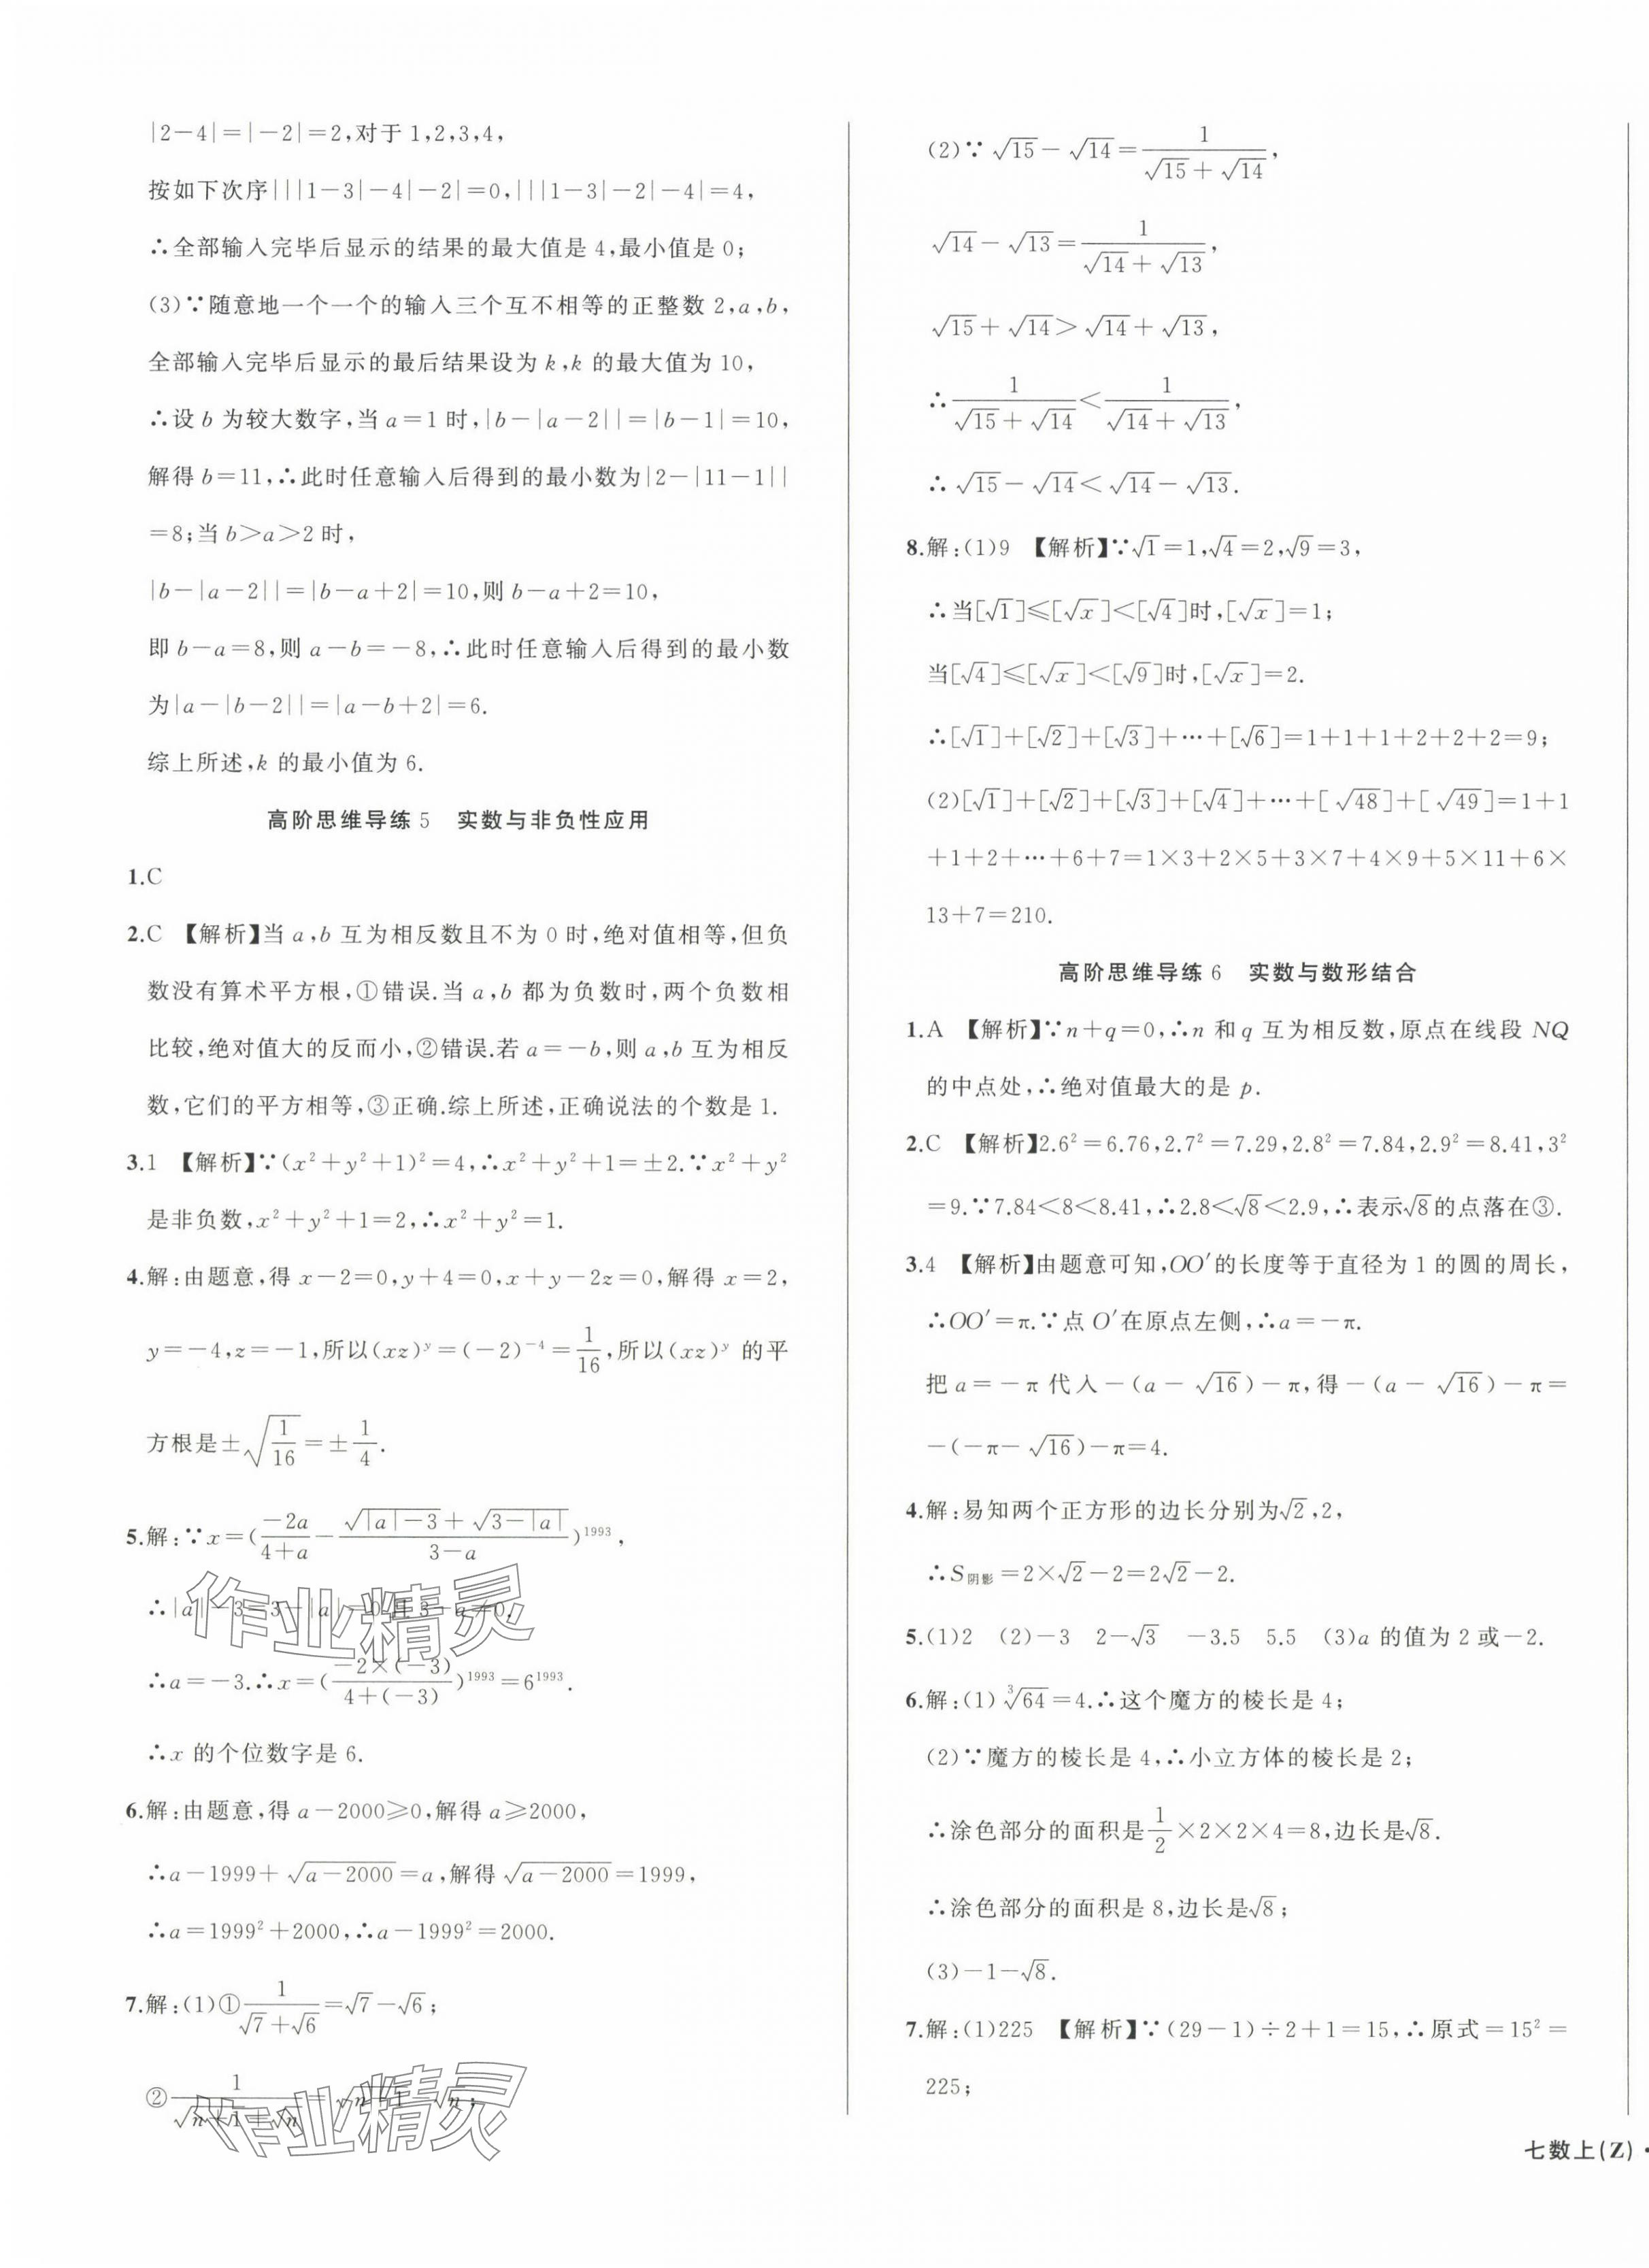 |2-4|=|-2|=2,对于1,2,3,4,
按如下次序|||1-3|-4|-2|=0,|||1-3|-2|-4|=4,
∴全部输入完毕后显示的结果的最大值是4,最小值是0;
(3)∵随意地一个一个的输入三个互不相等的正整数2,a,b,
全部输入完毕后显示的最后结果设为k,k的最大值为10,
∴设b为较大数字,当a=1时,|b-|a-2||=|b-1|=10,
解得b=11,∴此时任意输入后得到的最小数为|2-|11-1||
=8;当b>a>2时,
|b-|a-2||=|b-a+2|=10,则b-a+2=10,
即b-a=8,则a-b=-8,∴此时任意输入后得到的最小数
为|a-|b-2||=|a-b+2|=6.
综上所述,k的最小值为6.
高阶思维导练5 实数与非负性应用
1.C
2.C 【解析】当a,b互为相反数且不为0时,绝对值相等,但负
数没有算术平方根,①错误.当a,b都为负数时,两个负数相
比较,绝对值大的反而小,②错误.若a=-b,则a,b互为相反
数,它们的平方相等,③正确.综上所述,正确说法的个数是1.
3.1 【解析】∵(x²+y²+1)²=4,∴x²+y²+1=±2.∵x²+y²
是非负数,x²+y²+1=2,∴x²+y²=1.
4.解:由题意,得x-2=0,y+4=0,x+y-2z=0,解得x=2,
y=-4,z=-1,所以(xz)^y=(-2)^{-4}=1/16,所以(xz)^y的平
方根是±√(1/16)=±1/4.
5.解:∵x=(-2a/(4+a)-(√(|a|-3)+√(3-|a|))/(3-a))^1993,
∴|a|-3=3-|a|=0,且3-a≠0,
∴a=-3.∴x=(-2×(-3)/(4+(-3)))^1993=6^1993.
∴x的个位数字是6.
6.解:由题意,得a-2000≥0,解得a≥2000,
∴a-1999+√(a-2000)=a,解得√(a-2000)=1999,
∴a=1999²+2000,∴a-1999²=2000.
7.解:(1)①1/(√7+√6)=√7-√6;
②1/(√(n+1)+√n)=√(n+1)-√n;
(2)∵√15-√14=1/(√15+√14),
√14-√13=1/(√14+√13),
√15+√14>√14+√13,
∴1/(√15+√14)<1/(√14+√13),
∴√15-√14<√14-√13.
8.解:(1)9 【解析】∵√1=1,√4=2,√9=3,
∴当[√1]≤[√x]<[√4]时,[√x]=1;
当[√4]≤[√x]<[√9]时,[√x]=2.
∴[√1]+[√2]+[√3]+…+[√6]=1+1+1+2+2+2=9;
(2)[√1]+[√2]+[√3]+[√4]+…+[√48]+[√49]=1+1
+1+2+…+6+7=1×3+2×5+3×7+4×9+5×11+6×
13+7=210.
高阶思维导练6 实数与数形结合
1.A 【解析】∵n+q=0,∴n和q互为相反数,原点在线段NQ
的中点处,∴绝对值最大的是p.
2.C 【解析】2.6²=6.76,2.7²=7.29,2.8²=7.84,2.9²=8.41,3²
=9.∵7.84<8<8.41,∴2.8<√8<2.9,∴表示√8的点落在③.
3.4 【解析】由题意可知,OO′的长度等于直径为1的圆的周长,
∴OO′=π.∵点O′在原点左侧,∴a=-π.
把a=-π代入-(a-√16)-π,得-(a-√16)-π=
-(-π-√16)-π=4.
4.解:易知两个正方形的边长分别为√2,2,
∴S阴影=2×√2-2=2√2-2.
5.(1)2 (2)-3 2-√3 -3.5 5.5 (3)a的值为2或-2.
6.解:(1)∛64=4.∴这个魔方的棱长是4;
(2)∵魔方的棱长是4,∴小立方体的棱长是2;
∴涂色部分的面积是1/2×2×2×4=8,边长是√8.
∴涂色部分的面积是8,边长是√8;
(3)-1-√8.
7.解:(1)225 【解析】∵(29-1)÷2+1=15,∴原式=15²=
225;
七数上(Z)·
作业精灵
作业精灵